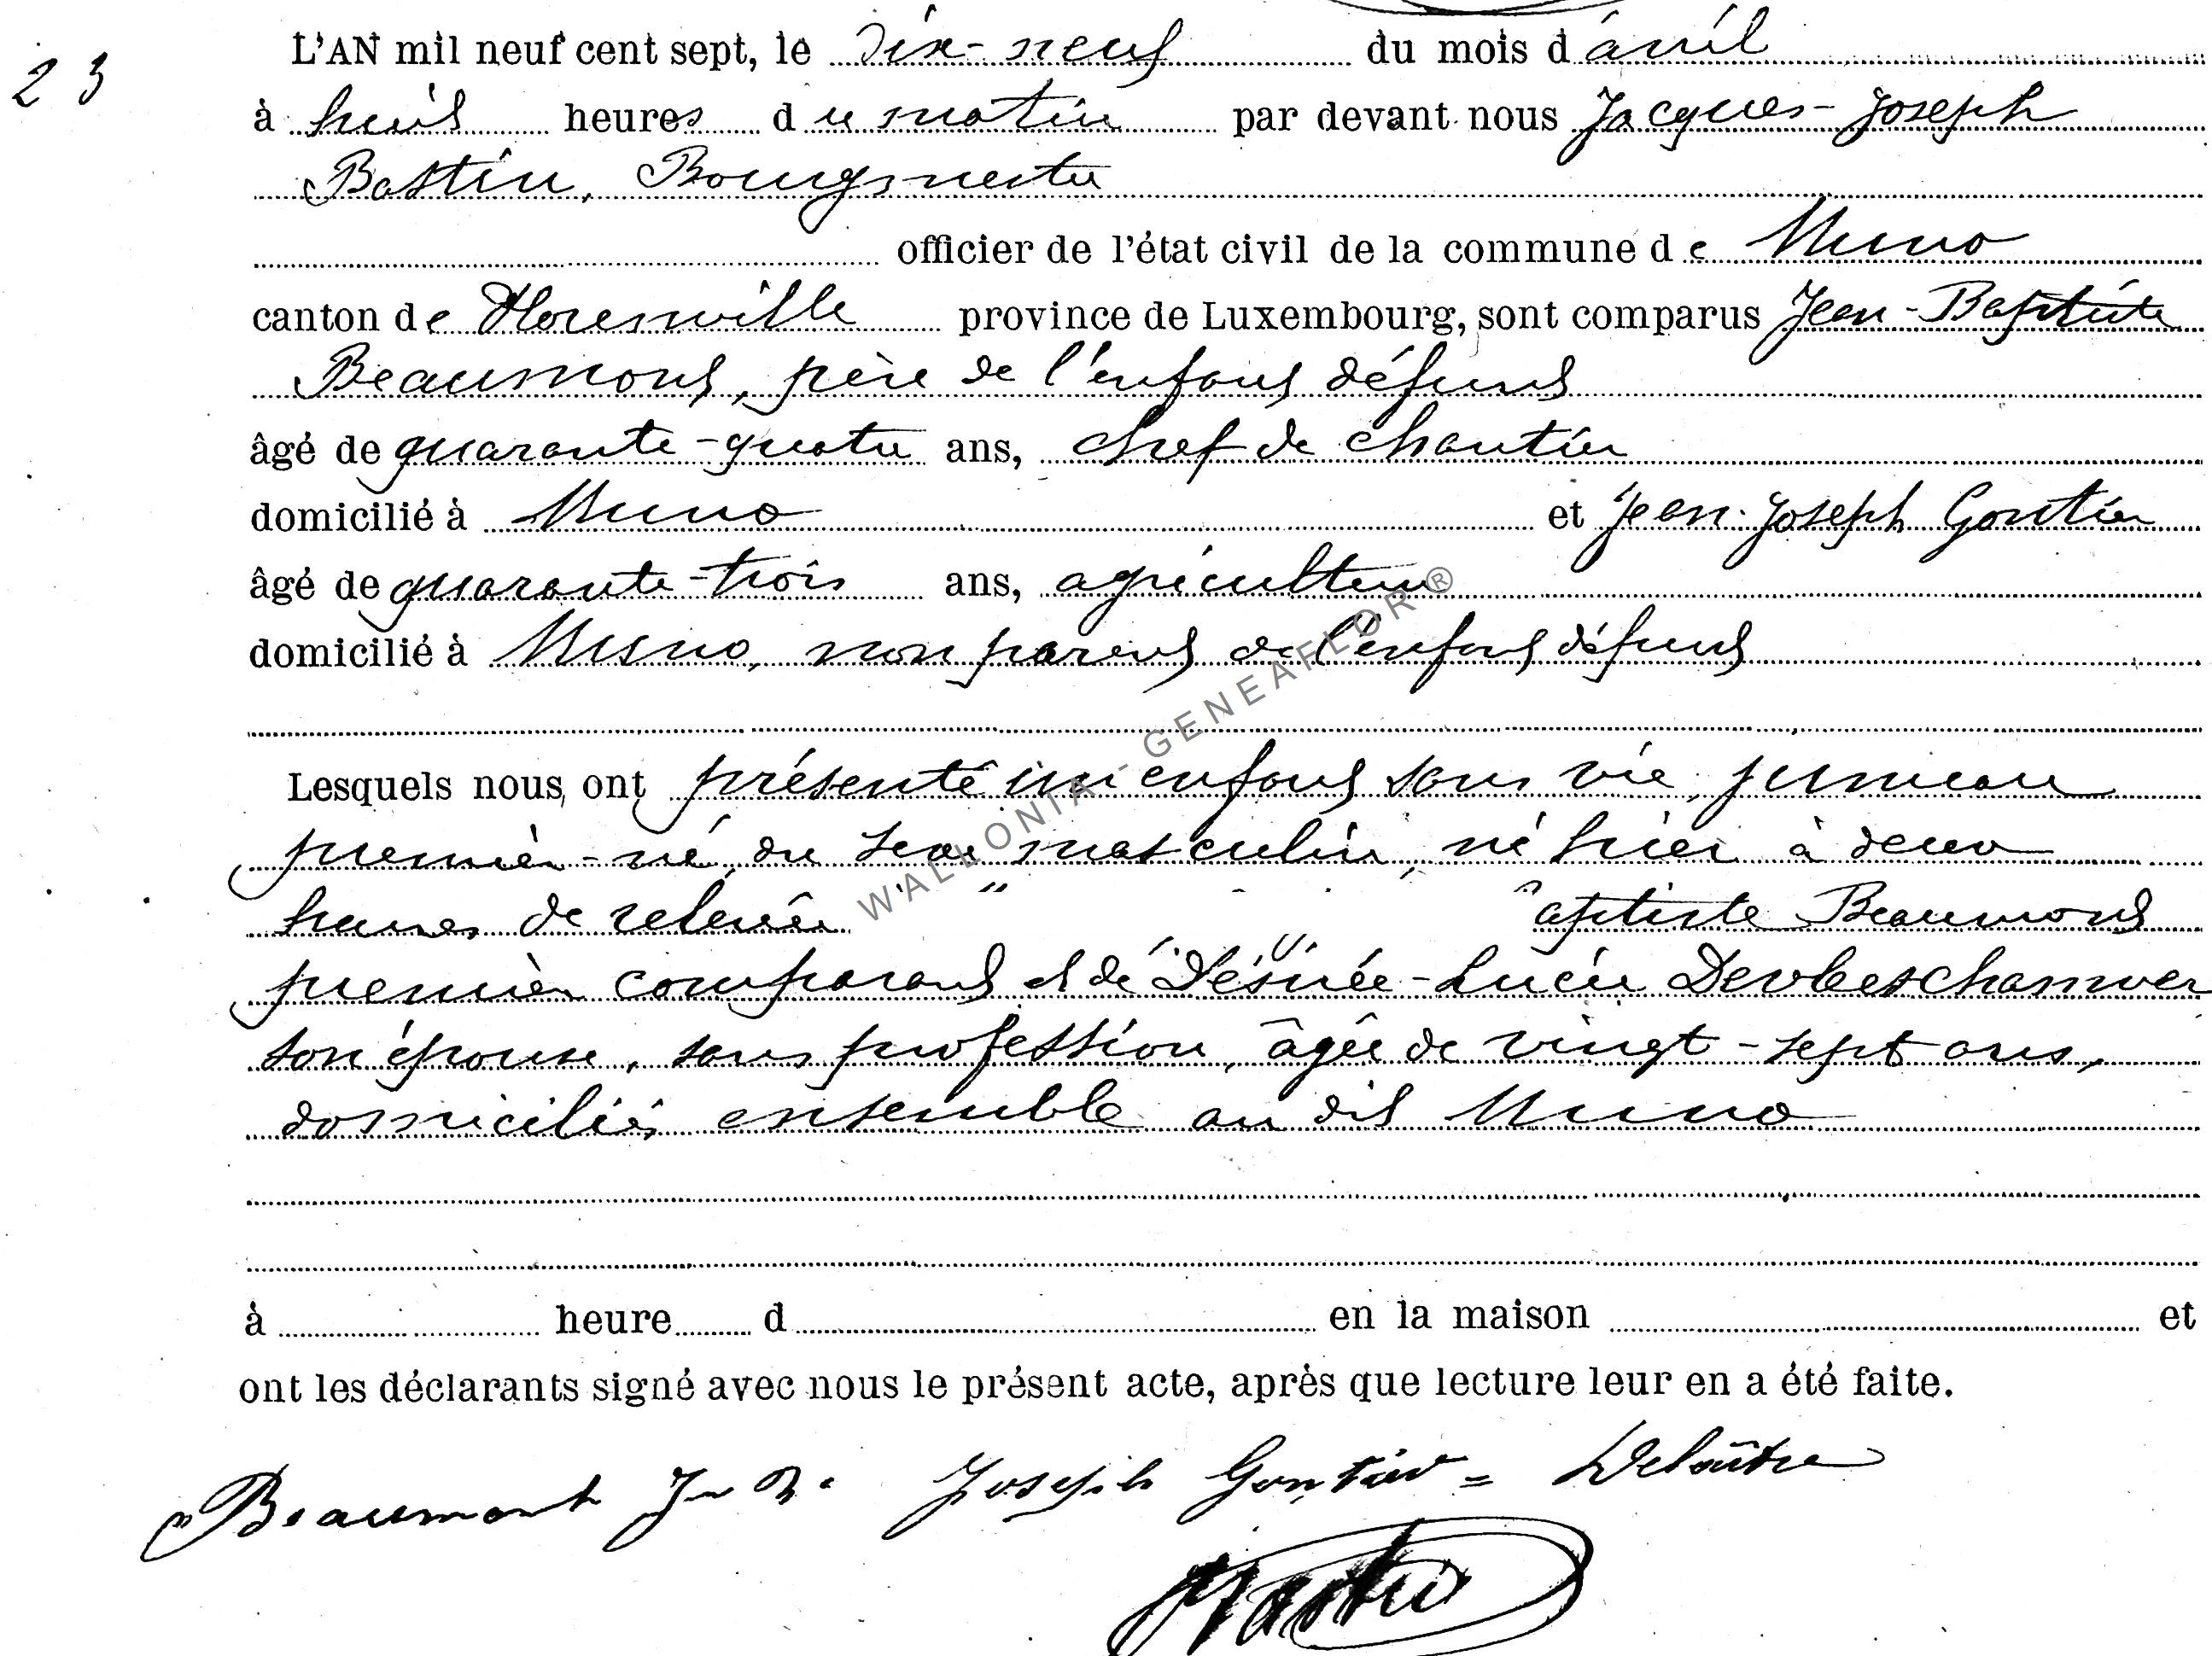 23
L'AN mil neuf cent sept, le dix-neuf du mois d'avril
à huit heures du matin par devant nous Jacques-Joseph
Bastin, Bourgmestre
officier de l'état civil de la commune de Muno
canton de Florenville province de Luxembourg, sont comparus Jean-Baptiste
Beaumont, père de l'enfant défunt
âgé de quarante-quatre ans, chef de chantier
domicilié à Muno et Jean-Joseph Gontier
âgé de quarante-trois ans, agriculteur
domicilié à Muno, non parent de l'enfant défunt
Lesquels nous ont présenté un enfant sans vie, jumeau
premier-né, du sexe masculin, né hier à deux
heures de relevée aptiste Beaumont
premier comparant et de Désirée-Lucie
son épouse, sans profession, âgée de vingt-sept ans,
domiciliés ensemble au dit Muno
à heure d en la maison et
ont les déclarants signé avec nous le présent acte, après que lecture leur en a été faite.
Beaumont J B. Joseph Gontier = Delaitre
Bastin
WALLONIA - GENEAFLOR ®